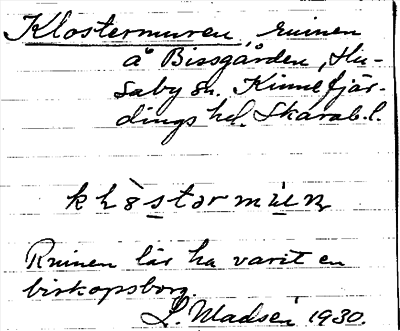 Klostermuren, ruinen
å Bissgården, Hu-
saby sn. Kinnefjär-
dings hd. Skarab. l.
Ruinen lär ha varit en
biskopsborg.
L. Madsén 1930.